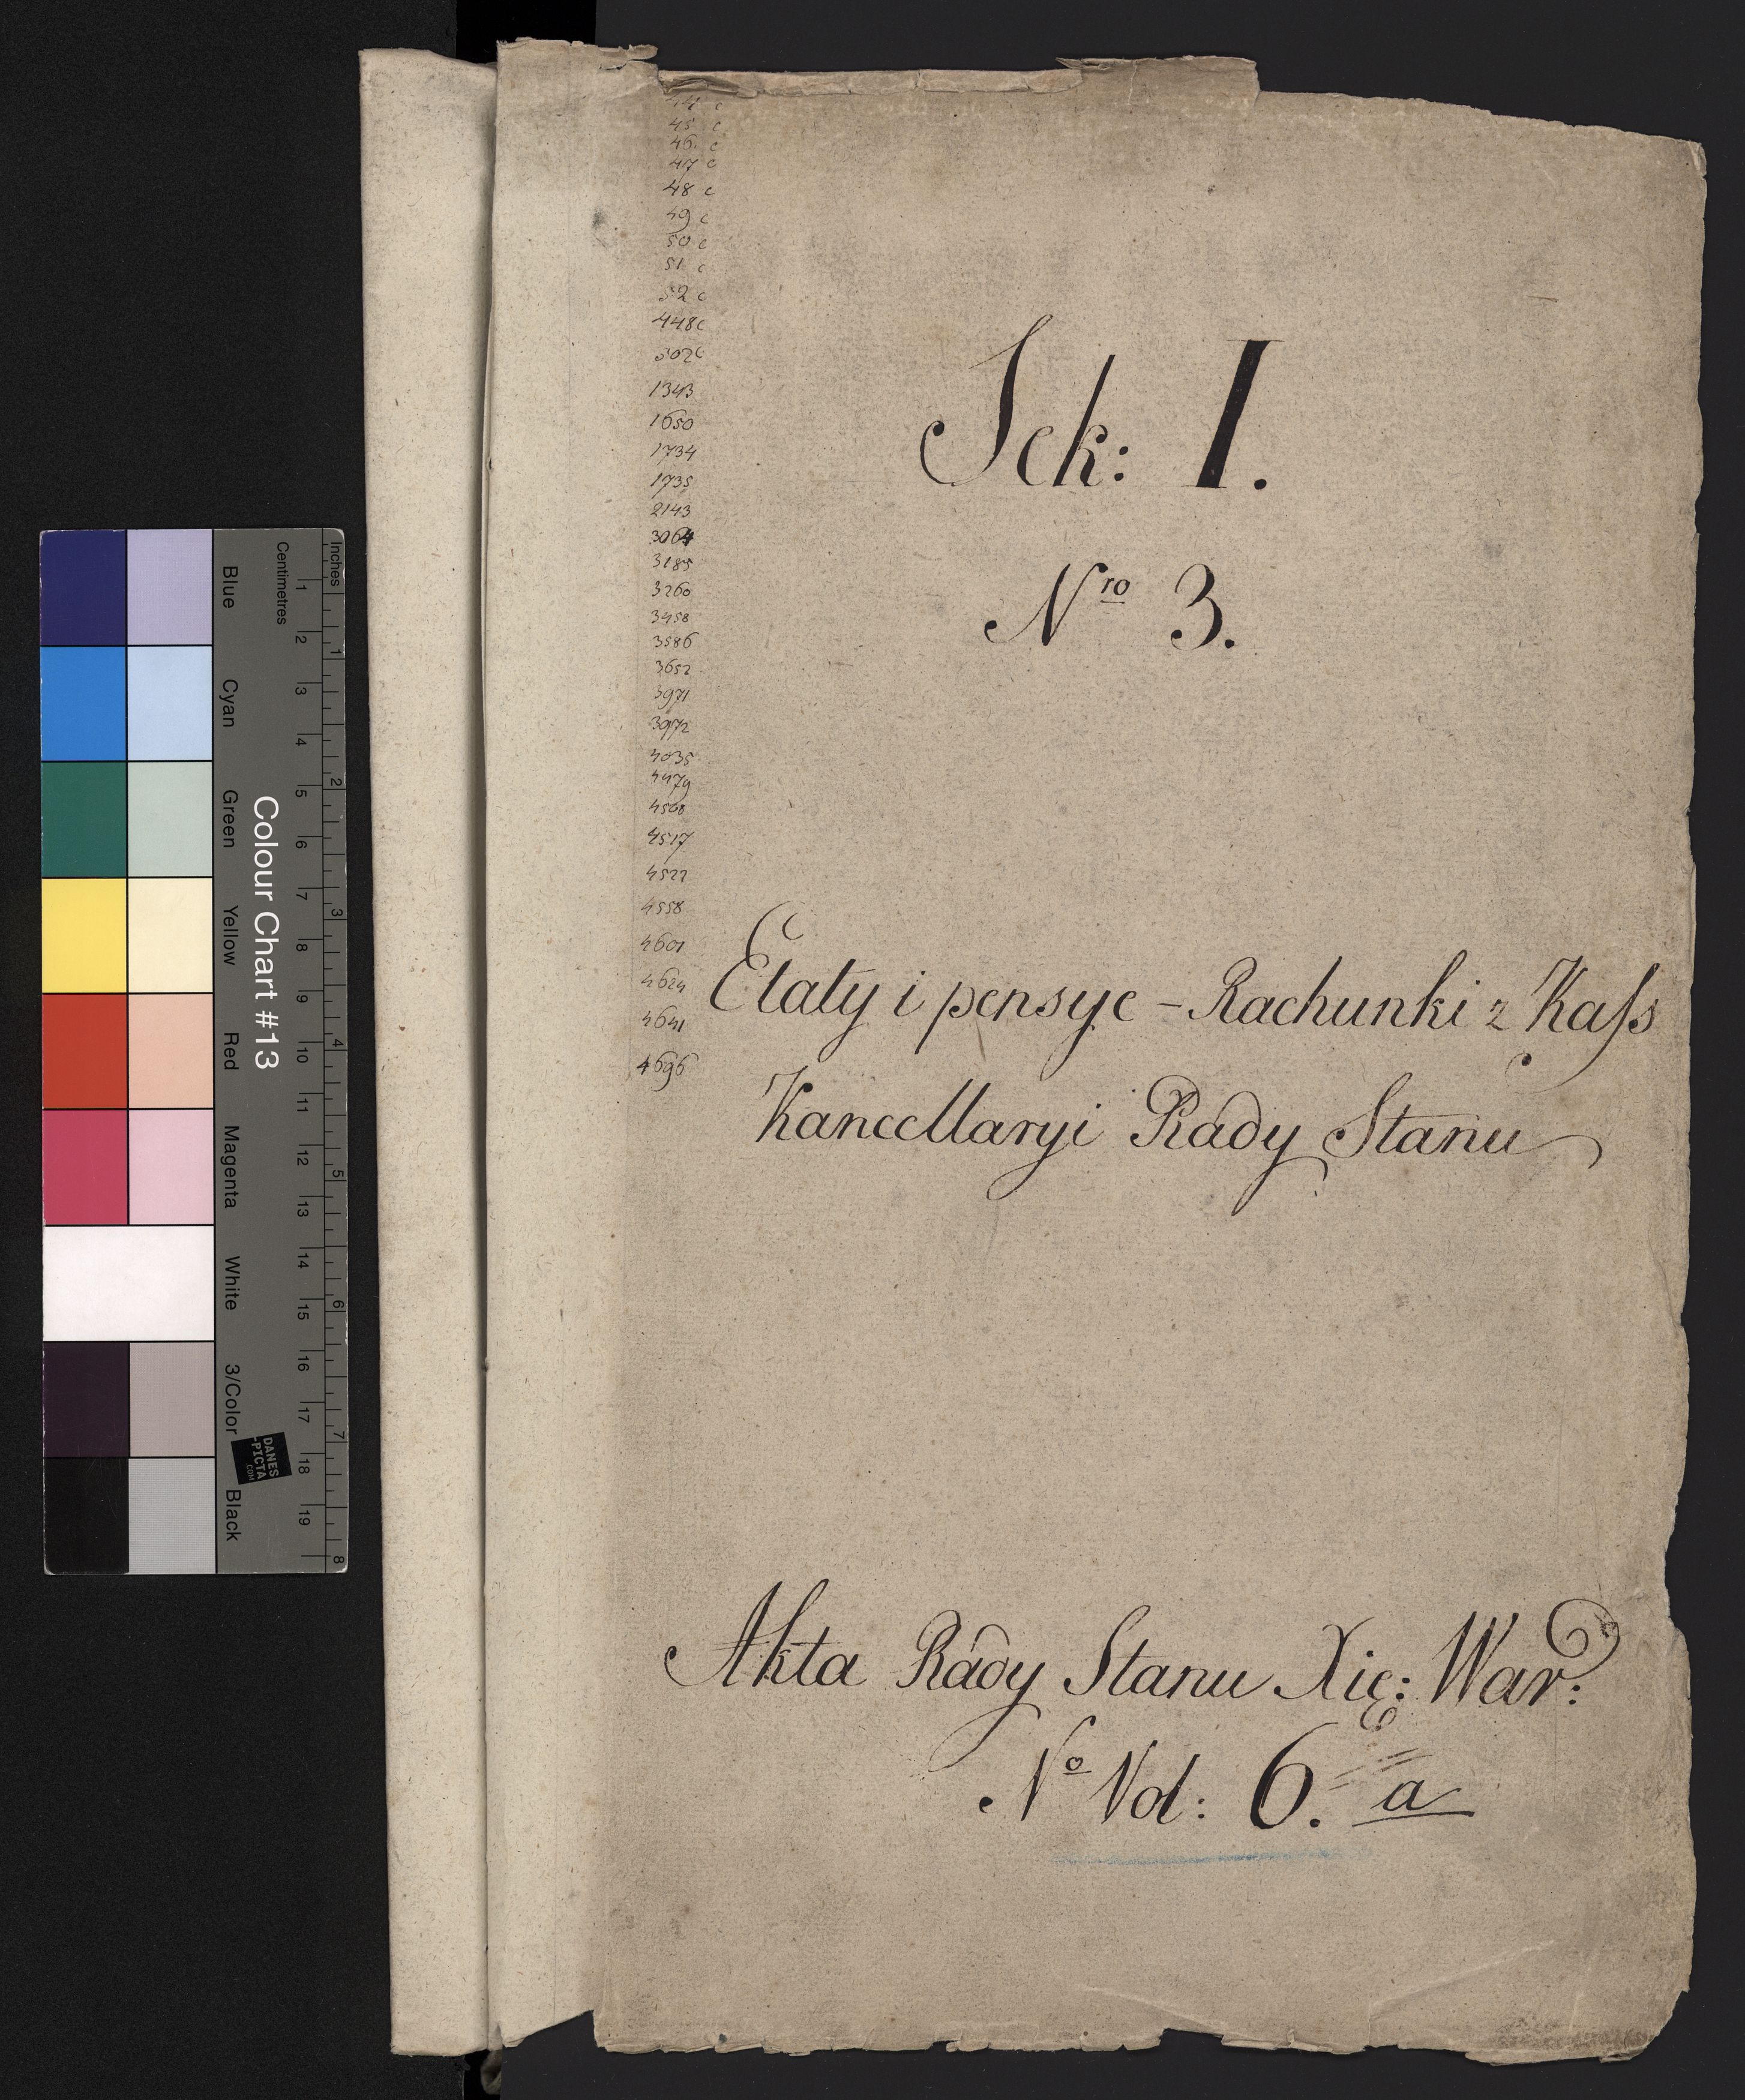 44 c
45 c
46. c
47 c
48 c
49 c
50 c
51 c
52 c
448c
302c
1343
1650
1734
1735
2143
3064
3185
3260
3458
3586
3652
3971
3972
4035
4479
4508
4517
4522
4558
4601
4624
4641
4696
Sek: I.
Nro 3.
Etaty i pensye – Rachunki z Kaſs
Kancellaryi Rady Stanu
Akta Rady Stanu Xię: War:
No Vol: 6. a
Inches
Centimetres
1 2 3 4 5 6 7 8 9 10 11 12 13 14 15 16 17 18 19
1 2 3 4 5 6 7 8
Colour Chart #13
Blue Cyan Green Yellow Red Magenta White 3/Color Black
DANES
-PICTA
.COM